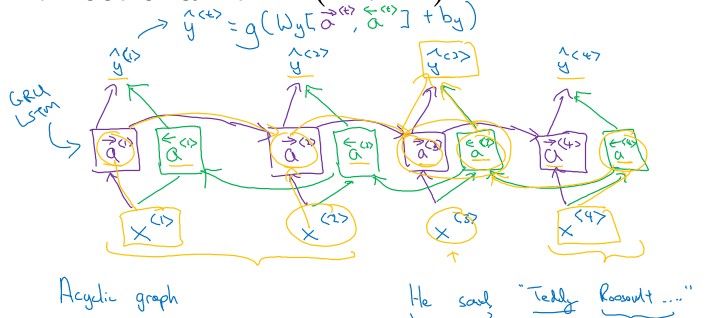 ŷ^<t> = g(Wy[a→^<t>, a←^<t>] + by)
ŷ^<1> ŷ^<2> ŷ^<3> ŷ^<4>
GRU
LSTM
a→^<1> a←^<1> a→^<2> a←^<2> a→^<3> a←^<3> a→^<4> a←^<4>
x^<1> x^<2> x^<3> x^<4>
Acyclic graph
He said, "Teddy Roosevelt ...."